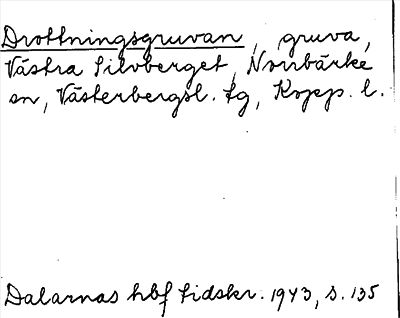 Drottningsgruvan, gruva,
Västra Silvberget, Norrbärke
sn, Västerbergsl. tg, Kopp. l.
Dalarnas hbf tidskr. 1943, s. 135